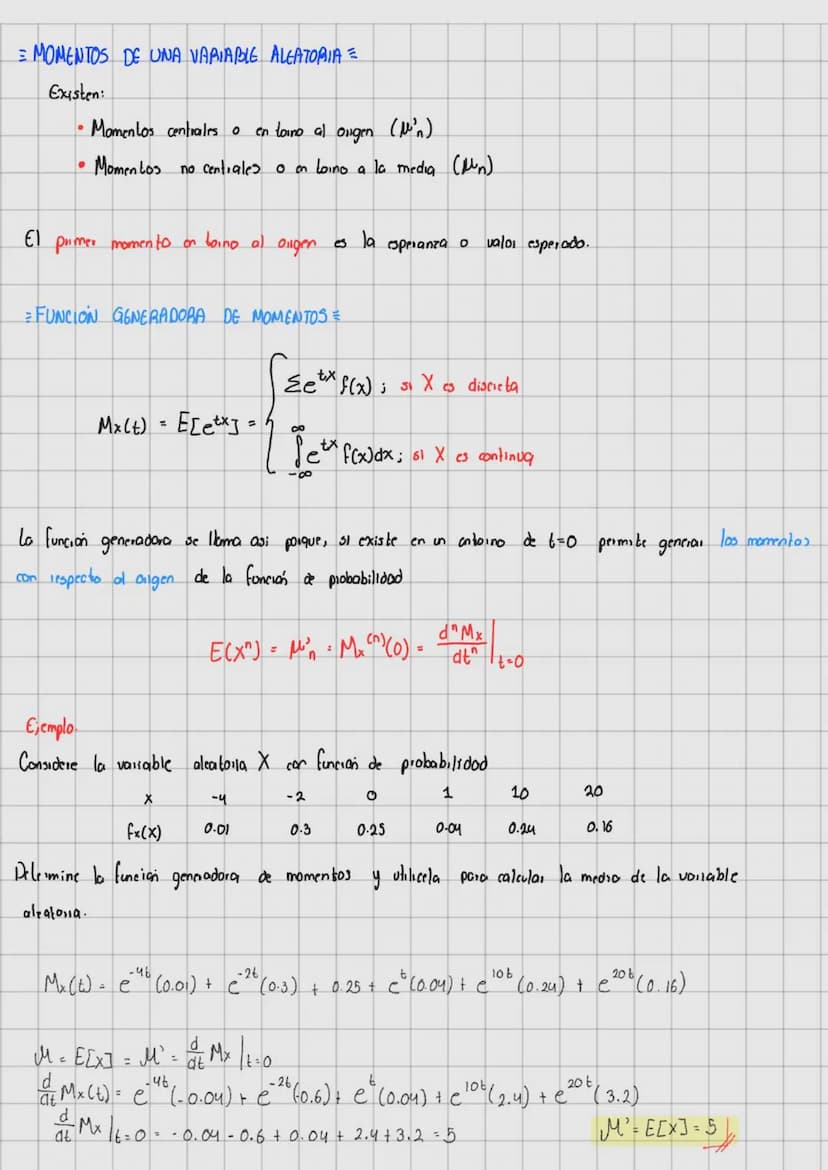 = MOMENTOS DE UNA VARIABLE ALEATORIA =
Existen:
• Momentos centrales o en torno al origen (μ'n)
• Momentos no centrales o en torno a la media (μn)
El primer momento en torno al origen es la esperanza o valor esperado.
= FUNCIÓN GENERADORA DE MOMENTOS =
Σe^tx f(x) ; si X es discreta
Mx(t) = E[e^tx] =
∫_-∞^∞ e^tx f(x)dx ; si X es continua
La función generadora se llama asi porque, si existe en un entorno de t=0 permite generar los momentos
con respecto al origen de la función de probabilidad
E(X^n) = μ'n = Mx^(n)(0) = d^n Mx / dt^n |t=0
Ejemplo.
Considere la variable aleatoria X con función de probabilidad
x -4 -2 0 1 10 20
fx(x) 0.01 0.3 0.25 0.04 0.24 0.16
Determine la función generadora de momentos y utilicela para calcular la media de la variable
aleatoria.
Mx(t) = e^-4t (0.01) + e^-2t (0.3) + 0.25 + e^t (0.04) + e^10t (0.24) + e^20t (0.16)
μ = E[X] = μ' = d/dt Mx |t=0
d/dt Mx(t) = e^-4t (-0.04) + e^-2t (-0.6) + e^t (0.04) + e^10t (2.4) + e^20t (3.2)
d/dt Mx |t=0 = -0.04 - 0.6 + 0.04 + 2.4 + 3.2 = 5 μ' = E[X] = 5